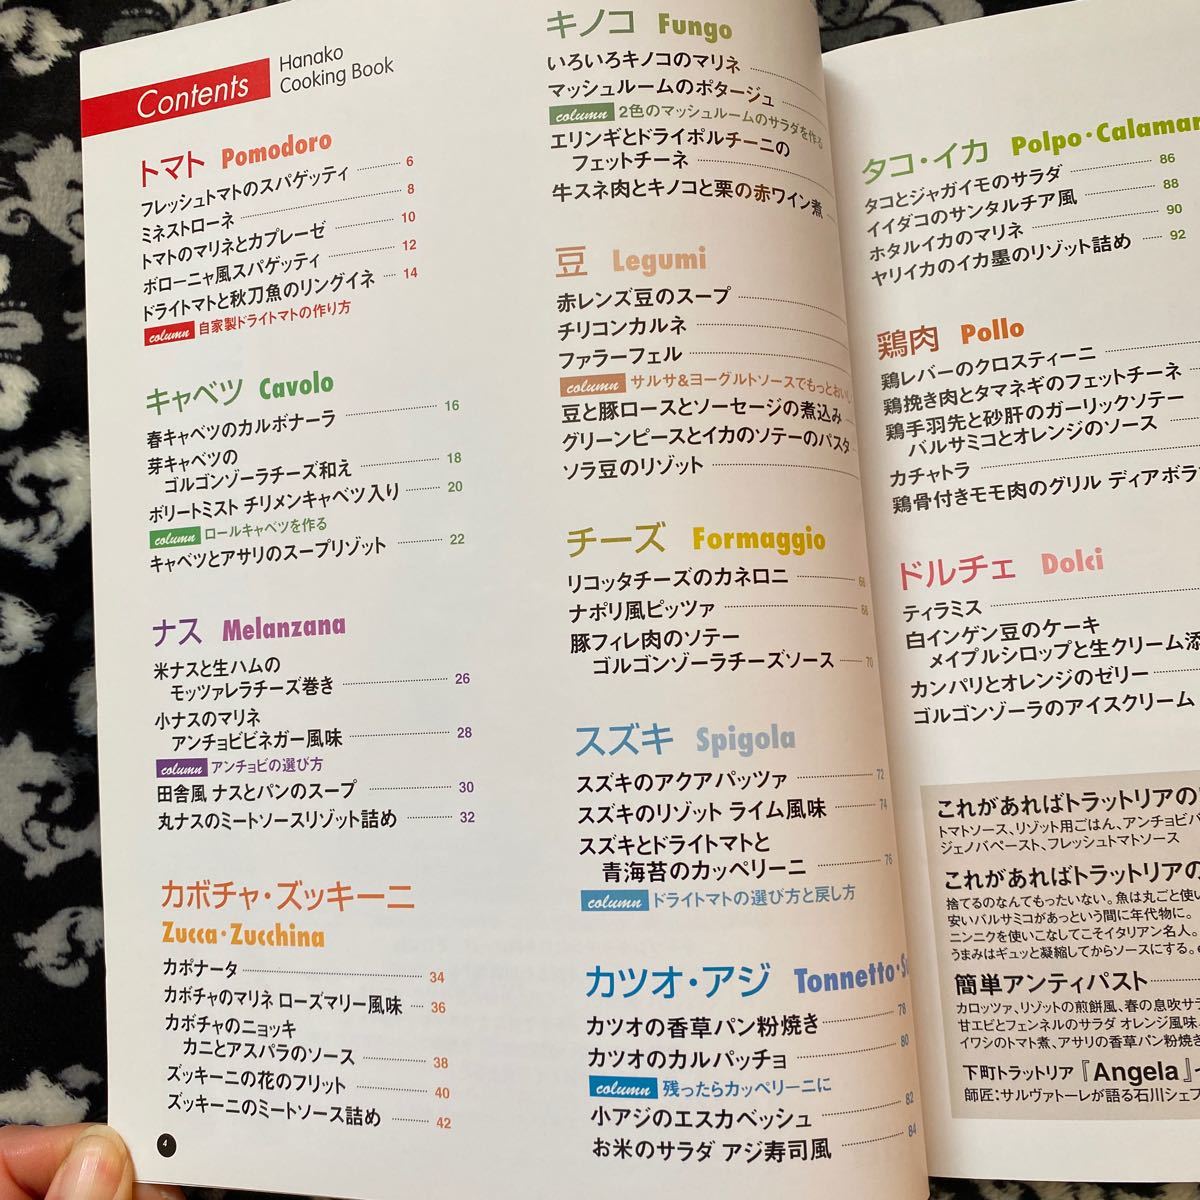 Contents
Hanako
Cooking Book
トマト Pomodoro
フレッシュトマトのスパゲッティ 6
ミネストローネ 8
トマトのマリネとカプレーゼ 10
ボローニャ風スパゲッティ 12
ドライトマトと秋刀魚のリングイネ 14
column 自家製ドライトマトの作り方
キャベツ Cavolo
春キャベツのカルボナーラ 16
芽キャベツの
ゴルゴンゾーラチーズ和え 18
ボリートミスト チリメンキャベツ入り 20
column ロールキャベツを作る
キャベツとアサリのスープリゾット 22
ナス Melanzana
米ナスと生ハムの
モッツァレラチーズ巻き 26
小ナスのマリネ
アンチョビビネガー風味 28
column アンチョビの選び方
田舎風 ナスとパンのスープ 30
丸ナスのミートソースリゾット詰め 32
カボチャ・ズッキーニ
Zucca・Zucchina
カポナータ 34
カボチャのマリネ ローズマリー風味 36
カボチャのニョッキ
カニとアスパラのソース 38
ズッキーニの花のフリット 40
ズッキーニのミートソース詰め 42
4
キノコ Fungo
いろいろキノコのマリネ
マッシュルームのポタージュ
column 2色のマッシュルームのサラダを作る
エリンギとドライポルチーニの
フェットチーネ
牛スネ肉とキノコと栗の赤ワイン煮
豆 Legumi
赤レンズ豆のスープ
チリコンカルネ
ファラーフェル
column サルサ&ヨーグルトソースでもっとおいし
豆と豚ロースとソーセージの煮込み
グリーンピースとイカのソテーのパスタ
ソラ豆のリゾット
チーズ Formaggio
リコッタチーズのカネロニ 66
ナポリ風ピッツァ 68
豚フィレ肉のソテー
ゴルゴンゾーラチーズソース 70
スズキ Spigola
スズキのアクアパッツァ 72
スズキのリゾット ライム風味 74
スズキとドライトマトと
青海苔のカッペリーニ 76
column ドライトマトの選び方と戻し方
カツオ・アジ Tonnetto・
カツオの香草パン粉焼き 78
カツオのカルパッチョ 80
column 残ったらカッペリーニに
小アジのエスカベッシュ 82
お米のサラダ アジ寿司風 84
タコ・イカ Polpo・Calamar
タコとジャガイモのサラダ 86
イイダコのサンタルチア風 88
ホタルイカのマリネ 90
ヤリイカのイカ墨のリゾット詰め 92
鶏肉 Pollo
鶏レバーのクロスティーニ
鶏挽き肉とタマネギのフェットチーネ
鶏手羽先と砂肝のガーリックソテー
バルサミコとオレンジのソース
カチャトラ
鶏骨付きモモ肉のグリル ディアボラ
ドルチェ Dolci
ティラミス
白インゲン豆のケーキ
メイプルシロップと生クリーム添
カンパリとオレンジのゼリー
ゴルゴンゾーラのアイスクリーム
これがあればトラットリアの
トマトソース、リゾット用ごはん、アンチョビバ
ジェノバペースト、フレッシュトマトソース
これがあればトラットリアの
捨てるのなんてもったいない。魚は丸ごと使い
安いバルサミコがあっという間に年代物に。
ニンニクを使いこなしてこそイタリアン名人。
うまみはギュッと凝縮してからソースにする。
簡単アンティパスト
カロッツァ、リゾットの煎餅風、春の息吹サラ
甘エビとフェンネルのサラダ オレンジ風味、
イワシのトマト煮、アサリの香草パン粉焼き
下町トラットリア『Angela』
師匠：サルヴァトーレが語る石川シェフ